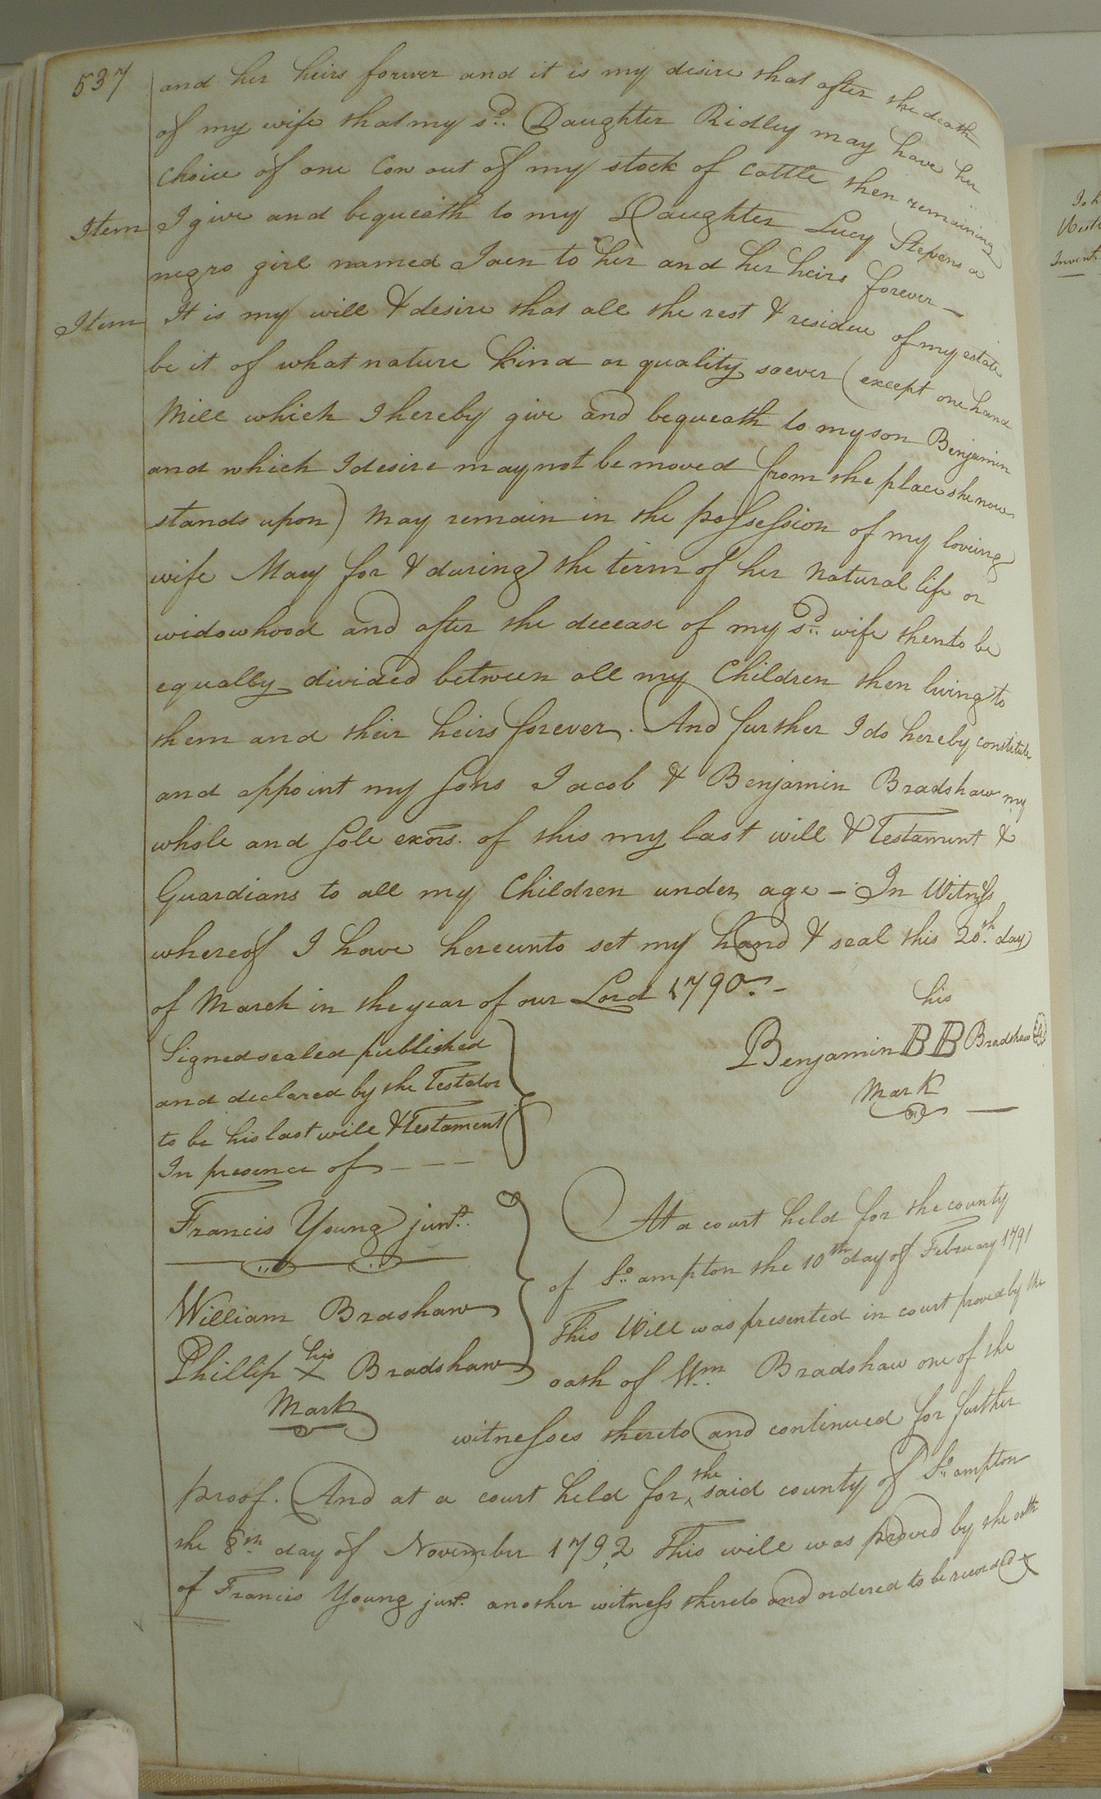 537
and her heirs forever and it is my desire that after the death
of my wife that my sd. Daughter Ridley may have her
choice of one Cow out of my stock of cattle then remaining
Item I give and bequeath to my Daughter Lucy Stevens a
negro girl named Jaen to her and her heirs forever —
Item It is my will & desire that all the rest & residue of my estate
be it of what nature kind or quality soever (except one hand
Mill which I hereby give and bequeath to my son Benjamin
and which I desire may not be moved from the place she now
stands upon) may remain in the possession of my loveing
wife Mary for & during the term of her natural life or
widowhood and after the decease of my sd. wife then to be
equally divided between all my Children then living to
them and their heirs forever. And further I do hereby constitute
and appoint my sons Jacob & Benjamin Bradshaw my
whole and sole exors. of this my last will & Testament &
Guardians to all my Children under age — In Witness
whereof I have hereunto set my hand & seal this 20th. day
of March in the year of our Lord 1790. —
his
Benjamin BB Bradshaw
Mark
Signed sealed published
and declared by the Testator
to be his last will & Testament
In presence of — — —
Francis Young junr.
William Bradshaw
Phillip his X Bradshaw
Mark
At a court held for the county
of So. ampton the 10th day of February 1791
This Will was presented in court proved by the
oath of Wm. Bradshaw one of the
witnesses thereto and continued for further
proof. And at a court held for the said county of So. ampton
the 8th day of November 1792 This will was proved by the oath
of Francis Young junr. another witness thereto and ordered to be recorded